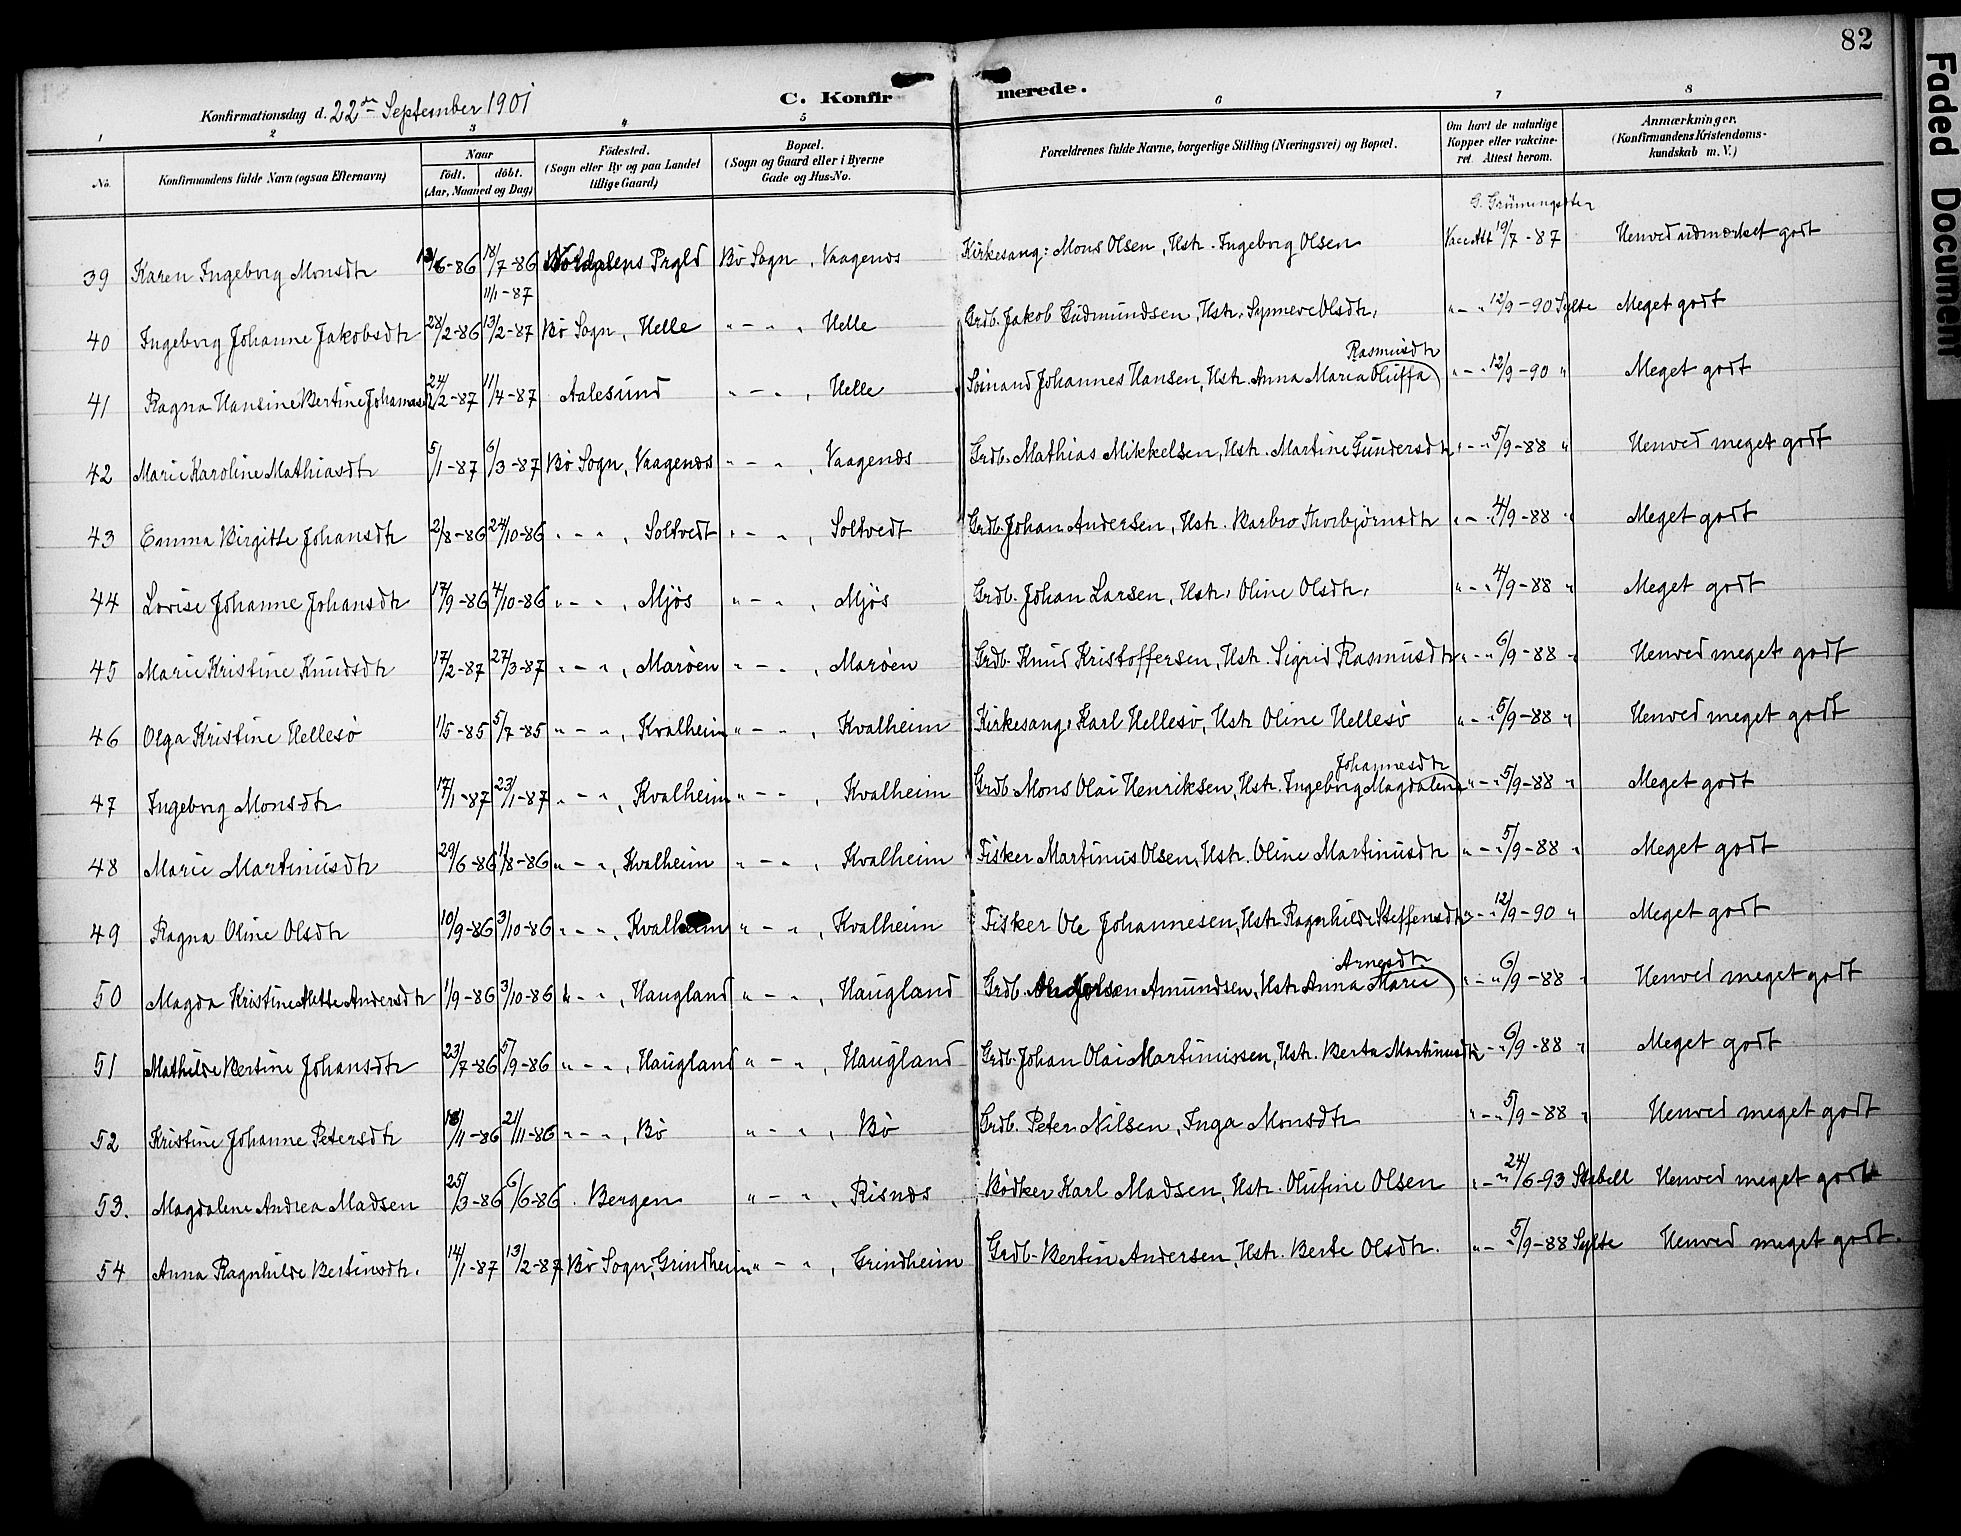 82
C. Konfirmerede.
Konfirmationsdag d. 22de September 1901
1 2 3 4 5 6 7 8
No. Konfirmandens fulde Navn (ogsaa Efternavn) Naar født. døbt. (Aar, Maaned og Dag) Fødested. (Sogn eller By og paa Landet tillige Gaard) Bopæl. (Sogn og Gaard eller i Byerne Gade og Hus-No. Forældrenes fulde Navne, borgerlige Stilling (Næringsvei) og Bopæl. Om havt de naturlige Kopper eller vakcineret. Attest herom. Anmærkninger. (Konfirmandens Kristendomskundskab m. V.)
39 Karen Ingeborg Monsdtr 13/6-86 18/7-86 Norddalens Prgld Bø Sogn, Vaagenæs Kirkesang: Mons Olsen, Hstr. Ingeborg Olsen Vacc Att 19/7-87 Henved udmærket godt
11/1-87
40 Ingeborg Johanne Jakobsdtr 28/2-86 13/2-87 Bø Sogn, Helle " - " , Helle Grdb. Jakob Gudmundsen, Hstr. Synneve Olsdtr. " - " 12/9-90 Sylte Meget godt
41 Ragna Hansine Bertine 24/2-87 11/4-87 Aalesund " - " , Helle Johannes Hansen, Hstr. Anna Maria Oluffa Rasmusdtr " - " 12/9-90 " Meget godt
42 Marie Karoline Mathiasdtr 5/1-87 6/3-87 Bø Sogn, Vaagenæs " - " , Vaagenæs Grdb. Mathias Mikkelsen, Hstr. Martine Gundersdtr " - " 5/9-88 " Henved meget godt
43 Emma Birgitte Johansdtr 2/8-86 24/10-86 " - " , Soltvedt " - " , Soltvedt Grdb. Johan Andersen, Hstr. Barbro Thorbjørnsdtr " - " 4/9-88 " Meget godt
44 Lovise Johanne Johansdtr 17/9-86 4/10-86 " - " , Mjøs " - " , Mjøs Grdb. Johan Larsen, Hstr. Oline Olsdtr. " - " 4/9-88 " Meget godt
45 Marie Kristine Knudsdtr 17/2-87 27/3-87 " - " , Marøen " - " , Marøen Grdb. Knud Kristoffersen, Hstr. Sigrid Rasmusdtr " - " 6/9-88 " Henved meget godt
46 Olga Kristine Hellesø 1/5-85 5/7-85 " - " , Kvalheim " - " , Kvalheim Kirkesang: Karl Hellesø, Hstr Oline Hellesø " - " 5/9-88 " Henved meget godt
47 Ingeborg Monsdtr 17/1-87 23/1-87 " - " , Kvalheim " - " , Kvalheim Grdb. Mons Olai Henriksen, Hstr. Ingeborg Magdalena Johannesdtr " - " 5/9-88 " Meget godt
48 Marie Martinusdtr 29/6-86 1/8-86 " - " , Kvalheim " - " , Kvalheim Fisker Martinus Olsen, Hstr. Oline Martinusdtr " - " 5/9-88 " Meget godt
49 Ragna Oline Olsdtr 10/9-86 3/10-86 " - " , Kvalheim " - " , Kvalheim Fisker Ole Johannesen, Hstr Ragnhilde Steffensdtr " - " 12/9-90 " Meget godt
50 Magda Kristine Mette Andersdtr 1/9-86 3/10-86 " - " , Haugland " - " , Haugland Grdb. Amundsen, Hstr Anna Marie Arnesdtr " - " 6/9-88 " Henved meget godt
51 Mathilde Bertine Johansdtr 23/7-86 5/9-86 " - " , Haugland " - " , Haugland Grdb. Johan Olai Martinussen, Hstr. Berta Martinusdtr " - " 6/9-88 " Meget godt
52 Kristine Johanne Petersdtr 13/11-86 21/11-86 " - " , Bø " - " , Bø Grdb. Peter Nilsen, Inga Monsdtr " - " 5/9-88 " Henved meget godt
53. Magdalene Andrea Madsen 25/3-86 6/6-86 Bergen " - " , Risnæs Bødker Karl Madsen, Hstr. Olufine Olsen " - " 24/6-93 Stabell Henved meget godt
54 Anna Ragnhilde Bertinsdtr. 14/1-87 13/2-87 Bø Sogn, Grindheim " - " , Grindheim Grdb. Bertin Andersen, Hstr. Berte Olsdtr. " - " 5/9-88 Sylte Henved meget godt.
Faded Document